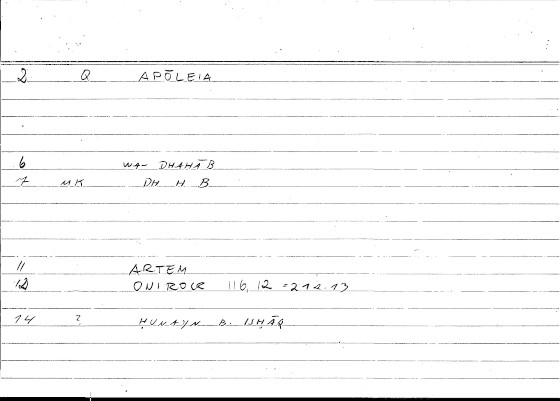 2 Q APŌLEIA
6 WA- DHAHĀB
7 MK DH H B
11 ARTEM
12 ONIROCR 116, 12 = 212.13
14 ? ḤUNAYN B. ISḤĀQ